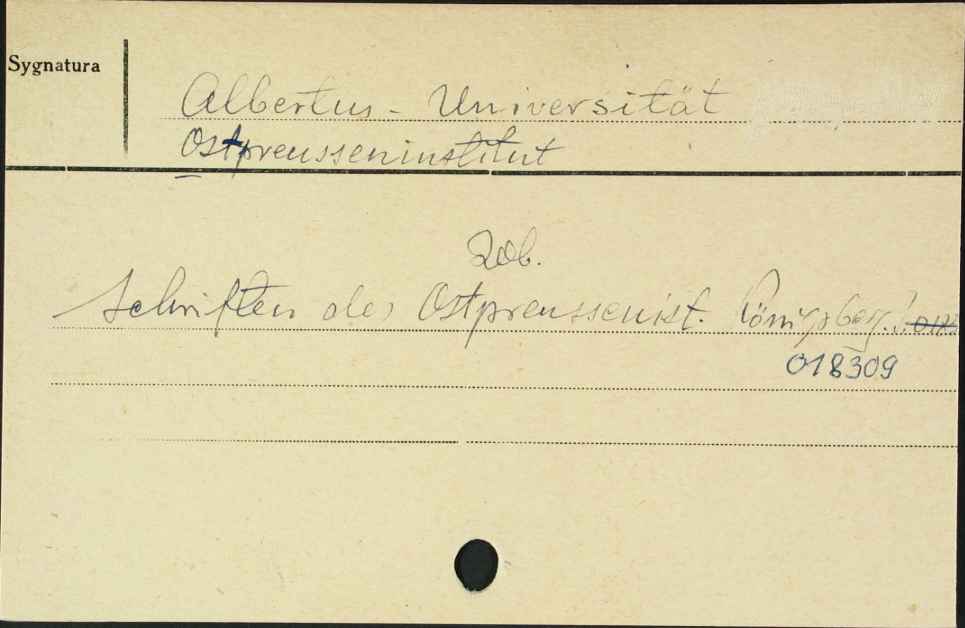 Sygnatura
Albertus - Universität
Ostpreusseninstitut
Zob.
Schriften des Ostpreussenist. Königsberg.
018309